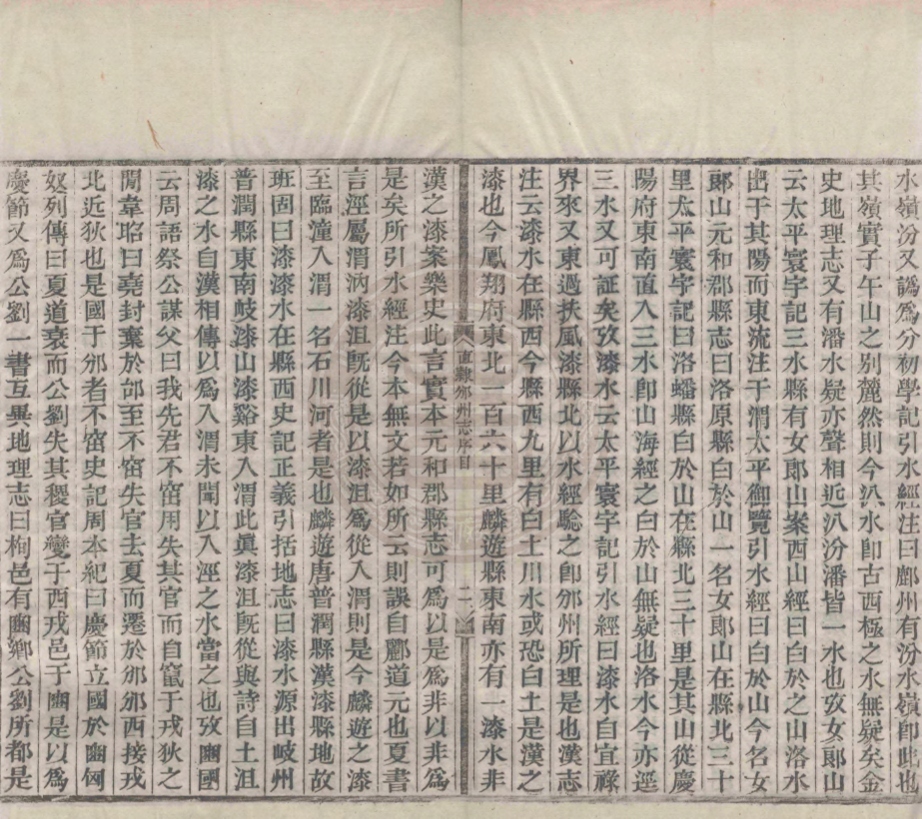 水嶺汾又譌爲分初學記引水經注曰鄜州有汾水嶺卽此也
其嶺實子午山之别麓然則今汃水卽古西極之水無疑矣金
史地理志又有潘水疑亦聲相近汃汾潘皆一水也攷女郞山
云太平寰宇記三水縣有女郞山案西山經曰白於之山洛水
出于其陽而東流注于渭太平御覽引水經曰白於山今名女
郞山元和郡縣志曰洛原縣白於山一名女郞山在縣北三十
里太平寰宇記曰洛蟠縣白於山在縣北三十里是其山從慶
陽府東南直入三水卽山海經之白於山無疑也洛水今亦逕
三水又可証矣攷漆水云太平寰宇記引水經曰漆水自宜祿
界來又東過扶風漆縣北以水經驗之卽邠州所理是也漢志
注云漆水在縣西今縣西九里有白土川水或恐白土是漢之
漆也今鳳翔府東北一百六十里麟遊縣東南亦有一漆水非
直隸邠州志序目
二
漢之漆案樂史此言實本元和郡縣志可爲以是爲非以非爲
是矣所引水經注今本無文若如所云則誤自酈道元也夏書
言涇屬渭汭漆沮旣從是以漆沮爲從入渭則是今麟遊之漆
至臨潼入渭一名石川河者是也麟遊唐普潤縣漢漆縣地故
班固曰漆漆水在縣西史記正義引括地志曰漆水源出岐州
普潤縣東南岐漆山漆谿東入渭此眞漆沮旣從與詩自土沮
漆之水自漢相傳以爲入渭未聞以入涇之水當之也攷豳國
云周語祭公謀父曰我先君不窋用失其官而自竄于戎狄之
閒韋昭曰堯封棄於邰至不窋失官去夏而遷於邠邠西接戎
北近狄也是國于邠者不窋史記周本紀曰慶節立國於豳匈
奴列傳曰夏道衰而公劉失其稷官變于西戎邑于豳是以爲
慶節又爲公劉一書互異地理志曰栒邑有豳鄉公劉所都是